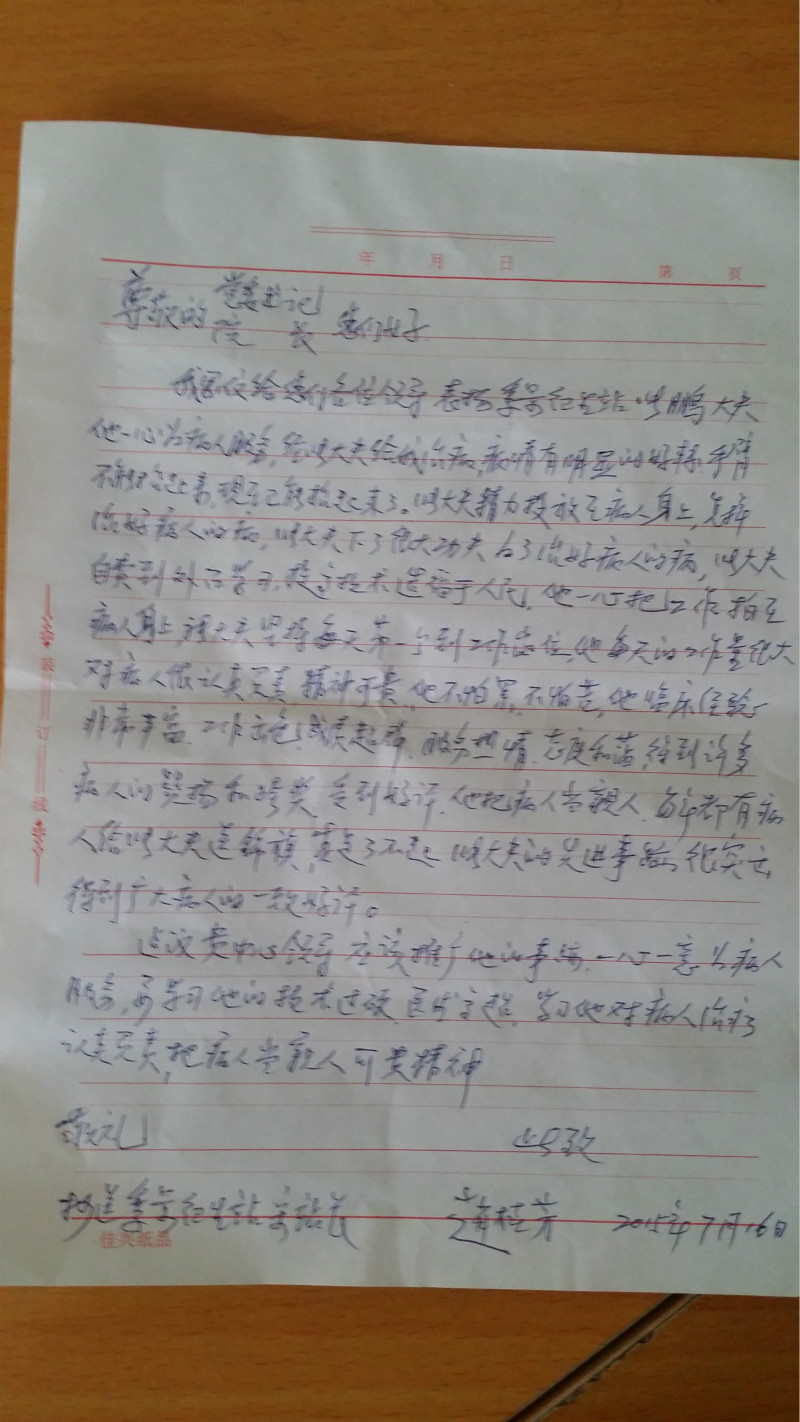 年 月 日 第 页
尊敬的 党委书记
院 长 您们好
我写信给您们各位领导表扬季景卫生站 鹏大夫
他一心为病人服务,给我治病,病情有明显的好转,手臂
不能抬起来,现在已能抬起来了。大夫精力投放在病人身上,怎样
治好病人的病,大夫下了很大功夫 为了治好病人的病,大夫
自费到外区学习,提高技术造福于人民,他一心把工作拍在
病人身上,大夫坚持每天第一个到工作岗位,他每天的工作量很大
对病人很认真负责,精神可贵,他不怕累,不怕苦,他临床经验
非常丰富,工作出色,成质起群,服务热情,态度和蔼,得到许多
病人的赞扬和夸奖,受到好评,他把病人当亲人,每年都有病
人给大夫送锦旗,真是了不起 大夫的先进事迹很突出
得到广大病人的一致好评。
建议贵中心领导应该推广他的事迹,一心一意为病人
服务,要学习他的技术过硬,医术高超,学习他对病人治病
认真负责,把病人当亲人可贵精神
敬礼 此致
抄送季景卫生站 站长 赵桂芳 2015年7月16日
佳兴纸品
装 订 线